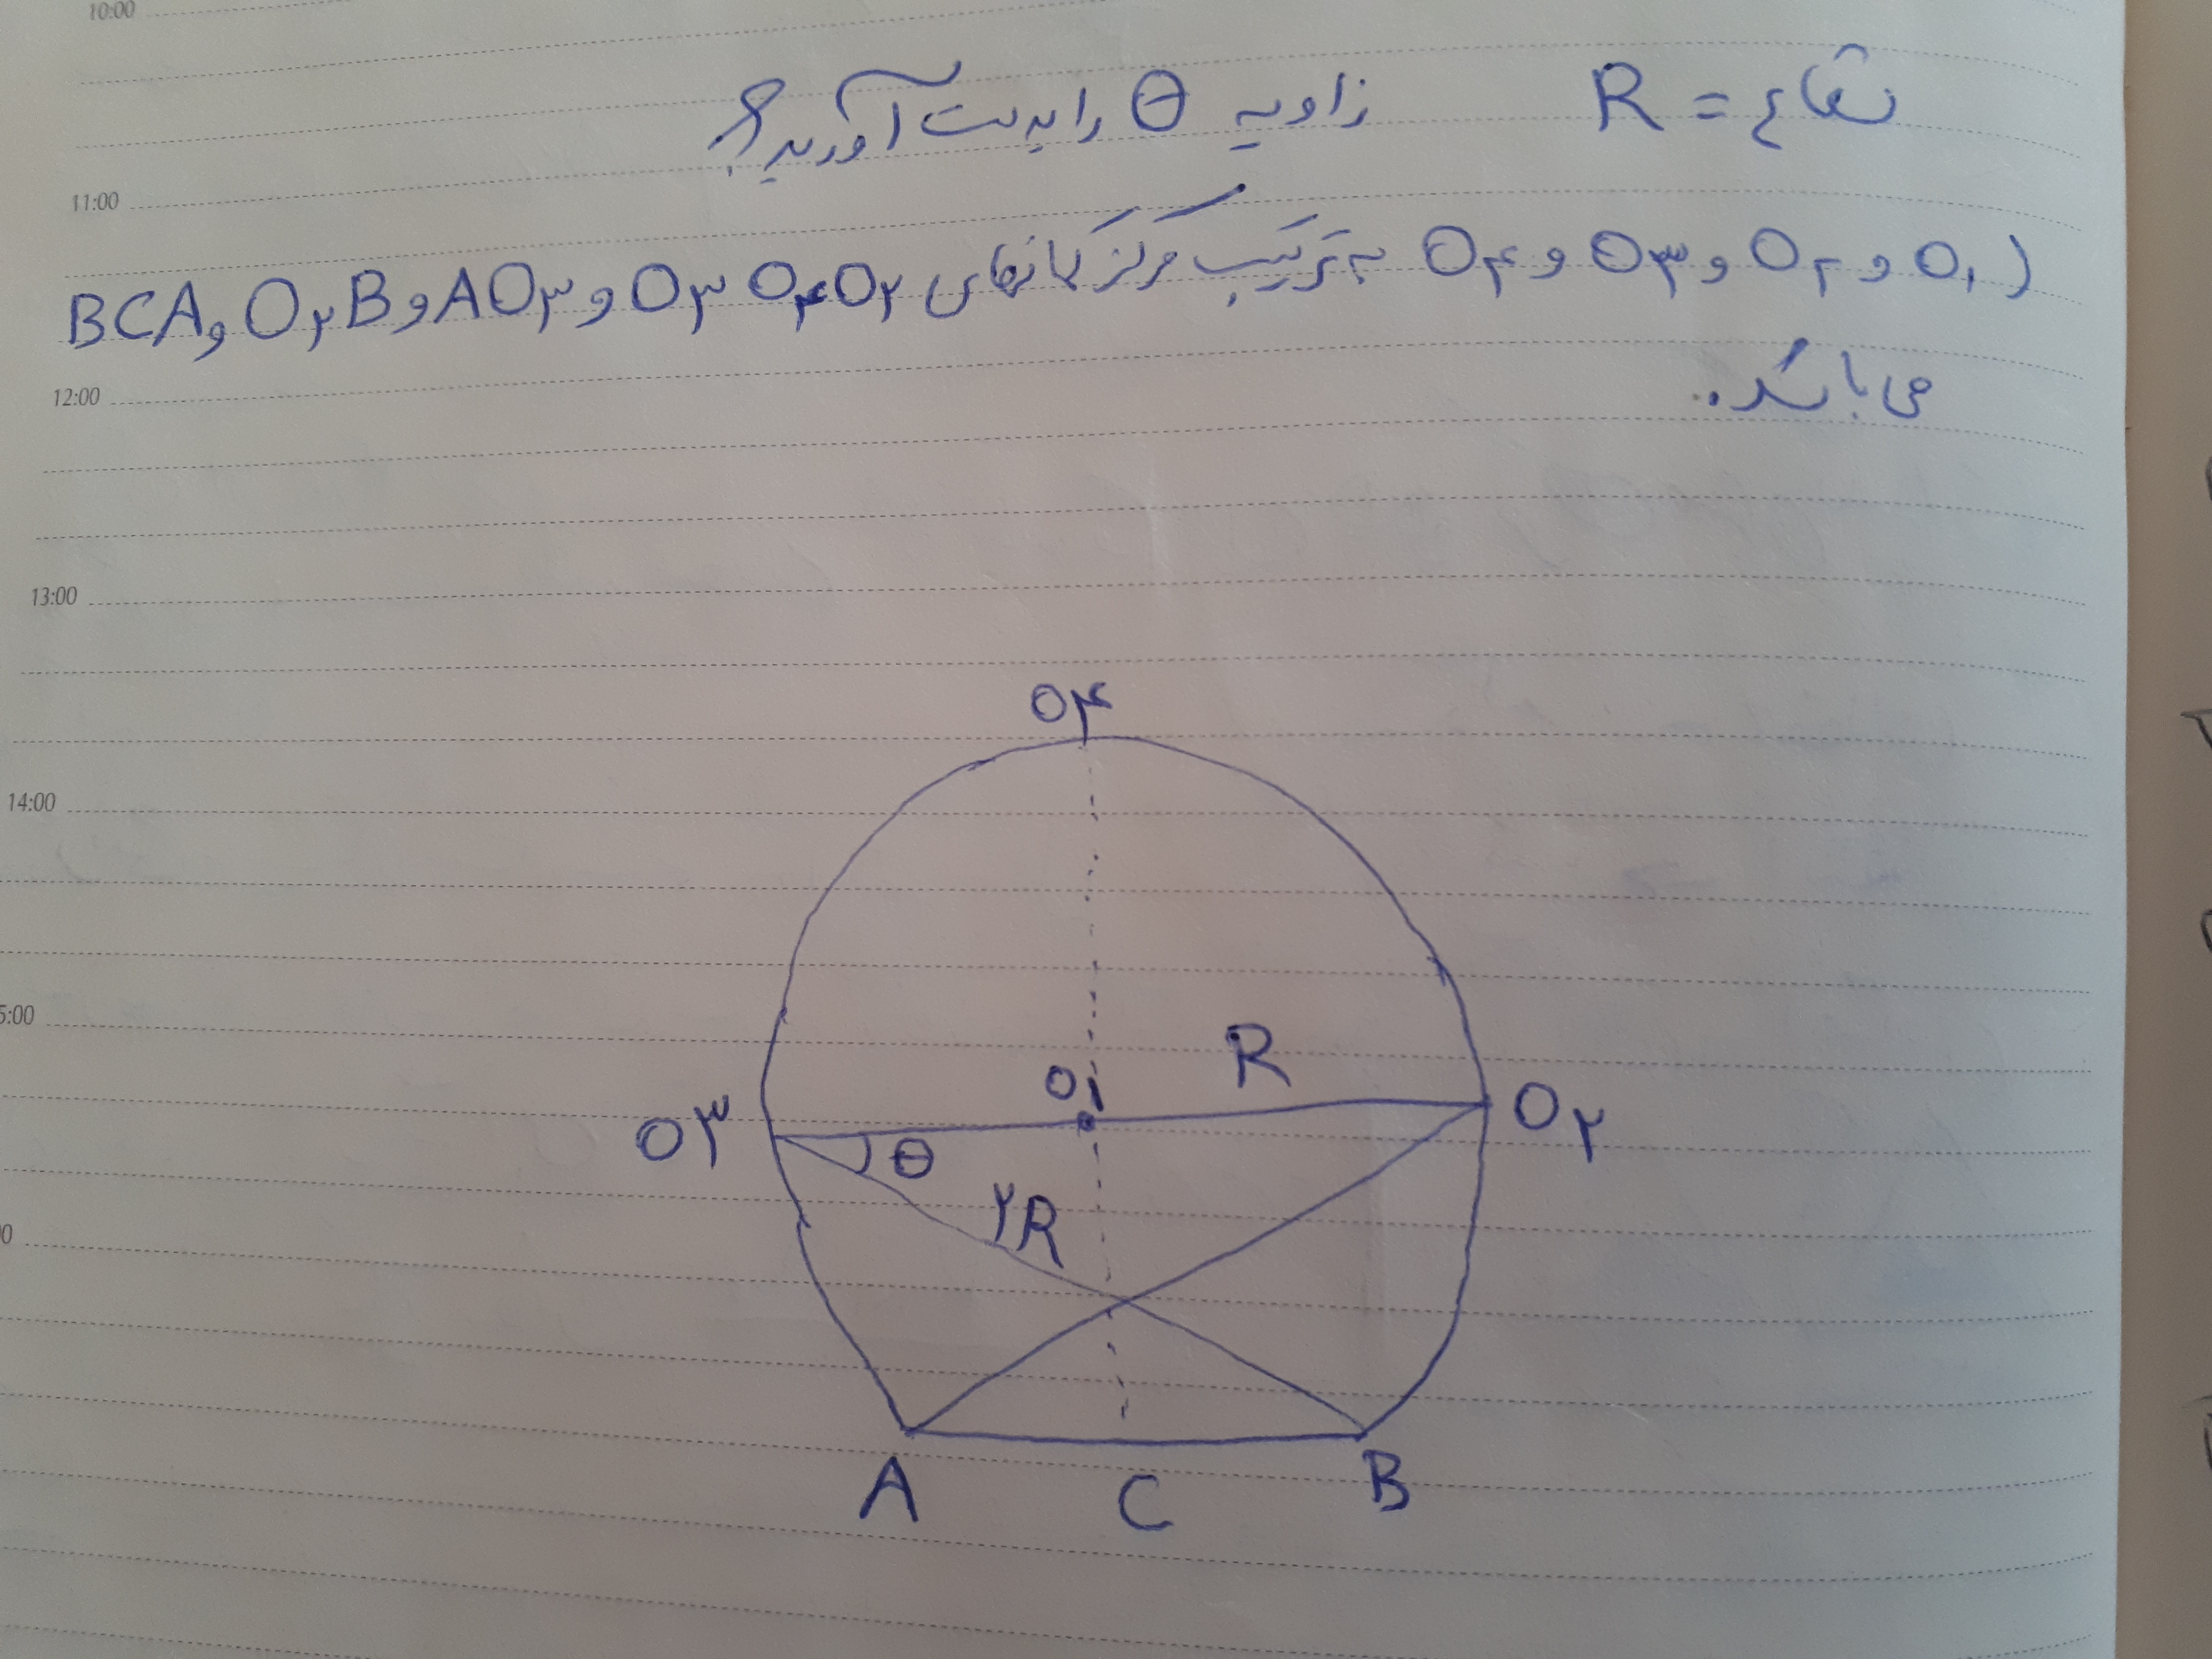 10:00
شعاع = R زاویه θ را بدست آورید؟
11:00
(O۱ و O۲ و O۳ و O۴ به ترتیب مرکز کمانهای O۳ O۴ O۲ و AO۳ و O۲B و BCA
12:00
می باشد.
13:00
O۴
14:00
5:00
R
O۱
O۳
O۲
θ
۲R
0
A
C
B